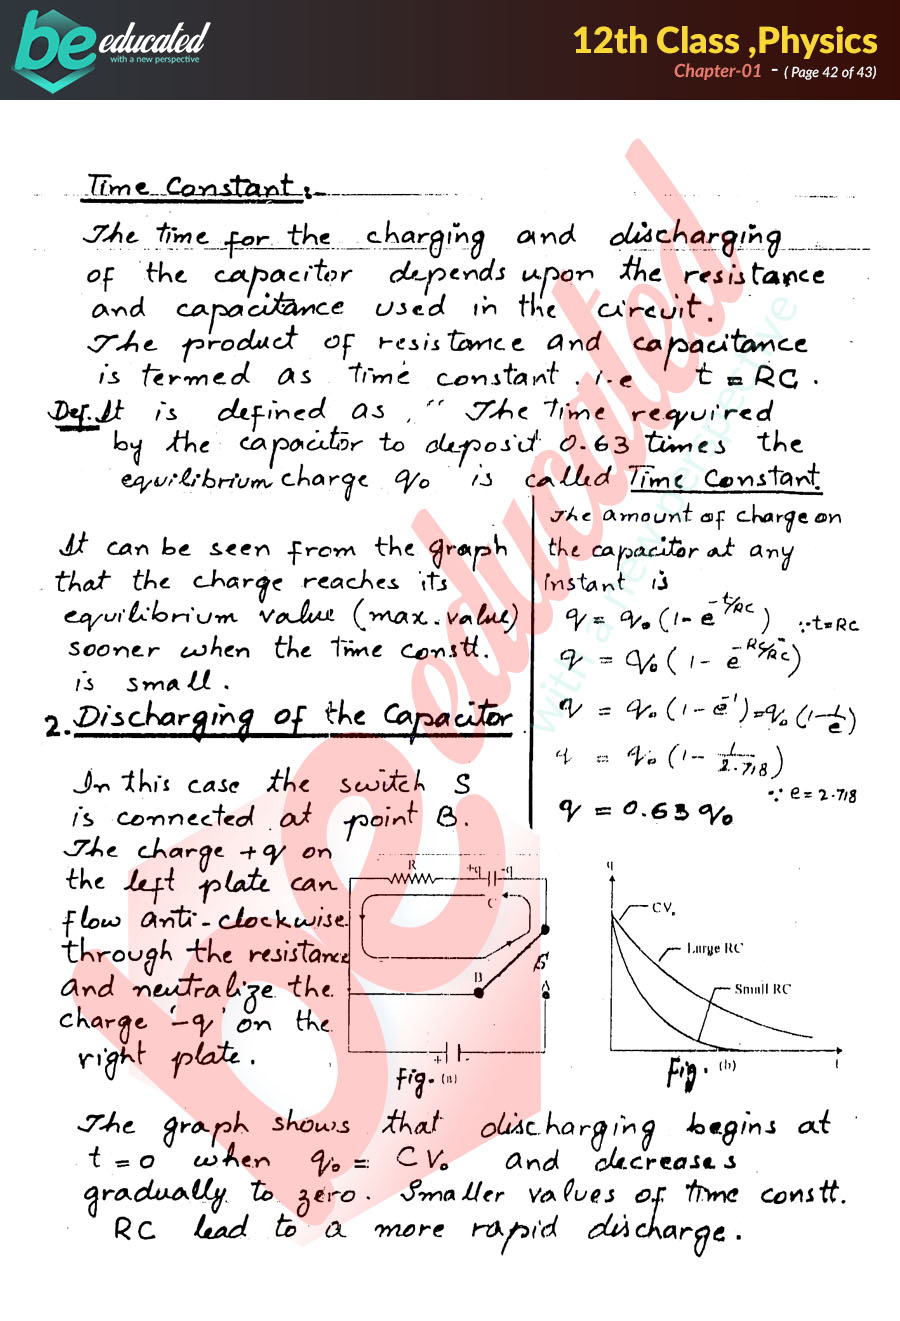 be educated
with a new perspective
12th Class ,Physics
Chapter-01 - ( Page 42 of 43)
Time Constant :-
The time for the charging and discharging
of the capacitor depends upon the resistance
and capacitance used in the circuit.
The product of resistance and capacitance
is termed as time constant. i.e t = RC.
Def. It is defined as, " The time required
by the capacitor to deposit 0.63 times the
equilibrium charge q₀ is called Time Constant.
It can be seen from the graph
that the charge reaches its
equilibrium value (max. value)
sooner when the time constt.
is small.
The amount of charge on
the capacitor at any
instant is
q = q₀ (1 - e^-t/RC) ∵ t = RC
q = q₀ ( 1 - e^-RC/RC)
q = q₀ (1 - e^-1) = q₀ (1 - 1/e)
q = q₀ (1 - 1/2.718)
∵ e = 2.718
q = 0.63 q₀
2. Discharging of the Capacitor
In this case the switch S
is connected at point B.
The charge +q on
the left plate can
flow anti-clockwise
through the resistance
and neutralize the
charge '-q' on the
right plate.
R +q -q
C
B
S
A
+ -
Fig. (a)
q
CV₀
Large RC
Small RC
t
Fig. (b)
The graph shows that discharging begins at
t = 0 when q₀ = CV₀ and decreases
gradually to zero. Smaller values of time constt.
RC lead to a more rapid discharge.
be educated
with a new perspective